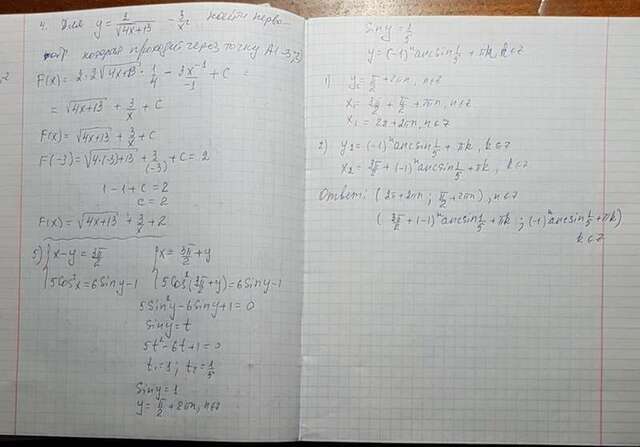 4. Для y = 1/√(4x+13) - 3/x² найти перво-
которая проходит через точку A(-3;2)
F(x) = 2·2√(4x+13) · 1/4 - 3x⁻¹/-1 + C =
= √(4x+13) + 3/x + C
F(x) = √(4x+13) + 3/x + C
F(-3) = √(4·(-3)+13) + 3/(-3) + C = 2
1 - 1 + C = 2
C = 2
F(x) = √(4x+13) + 3/x + 2
5) { x - y = 3π/2 { x = 3π/2 + y
5Cos²x = 6Siny - 1 5Cos²(3π/2 + y) = 6Siny - 1
5Sin²y - 6Siny + 1 = 0
Siny = t
5t² - 6t + 1 = 0
t₁ = 1; t₂ = 1/5
Siny = 1
y = π/2 + 2πn, n∈Z
Siny = 1/5
y = (-1)ᵏ arcsin 1/5 + πk, k∈Z
1) y₁ = π/2 + 2πn, n∈Z
x₁ = 3π/2 + π/2 + 2πn, n∈Z
x₁ = 2π + 2πn, n∈Z
2) y₂ = (-1)ᵏ arcsin 1/5 + πk, k∈Z
x₂ = 3π/2 + (-1)ᵏ arcsin 1/5 + πk, k∈Z
Ответ: (2π + 2πn; π/2 + 2πn), n∈Z
(3π/2 + (-1)ᵏ arcsin 1/5 + πk; (-1)ᵏ arcsin 1/5 + πk)
k∈Z